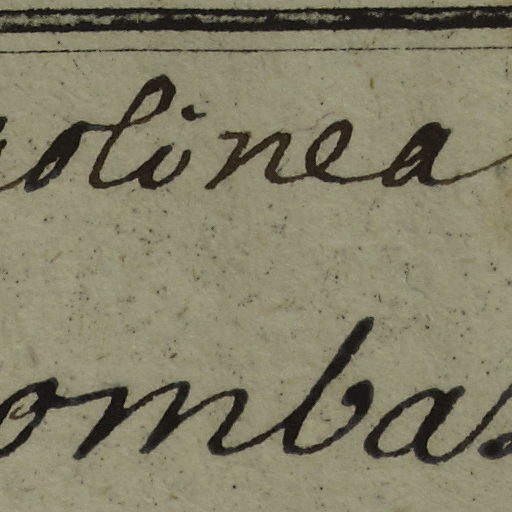 rolinea
ombax